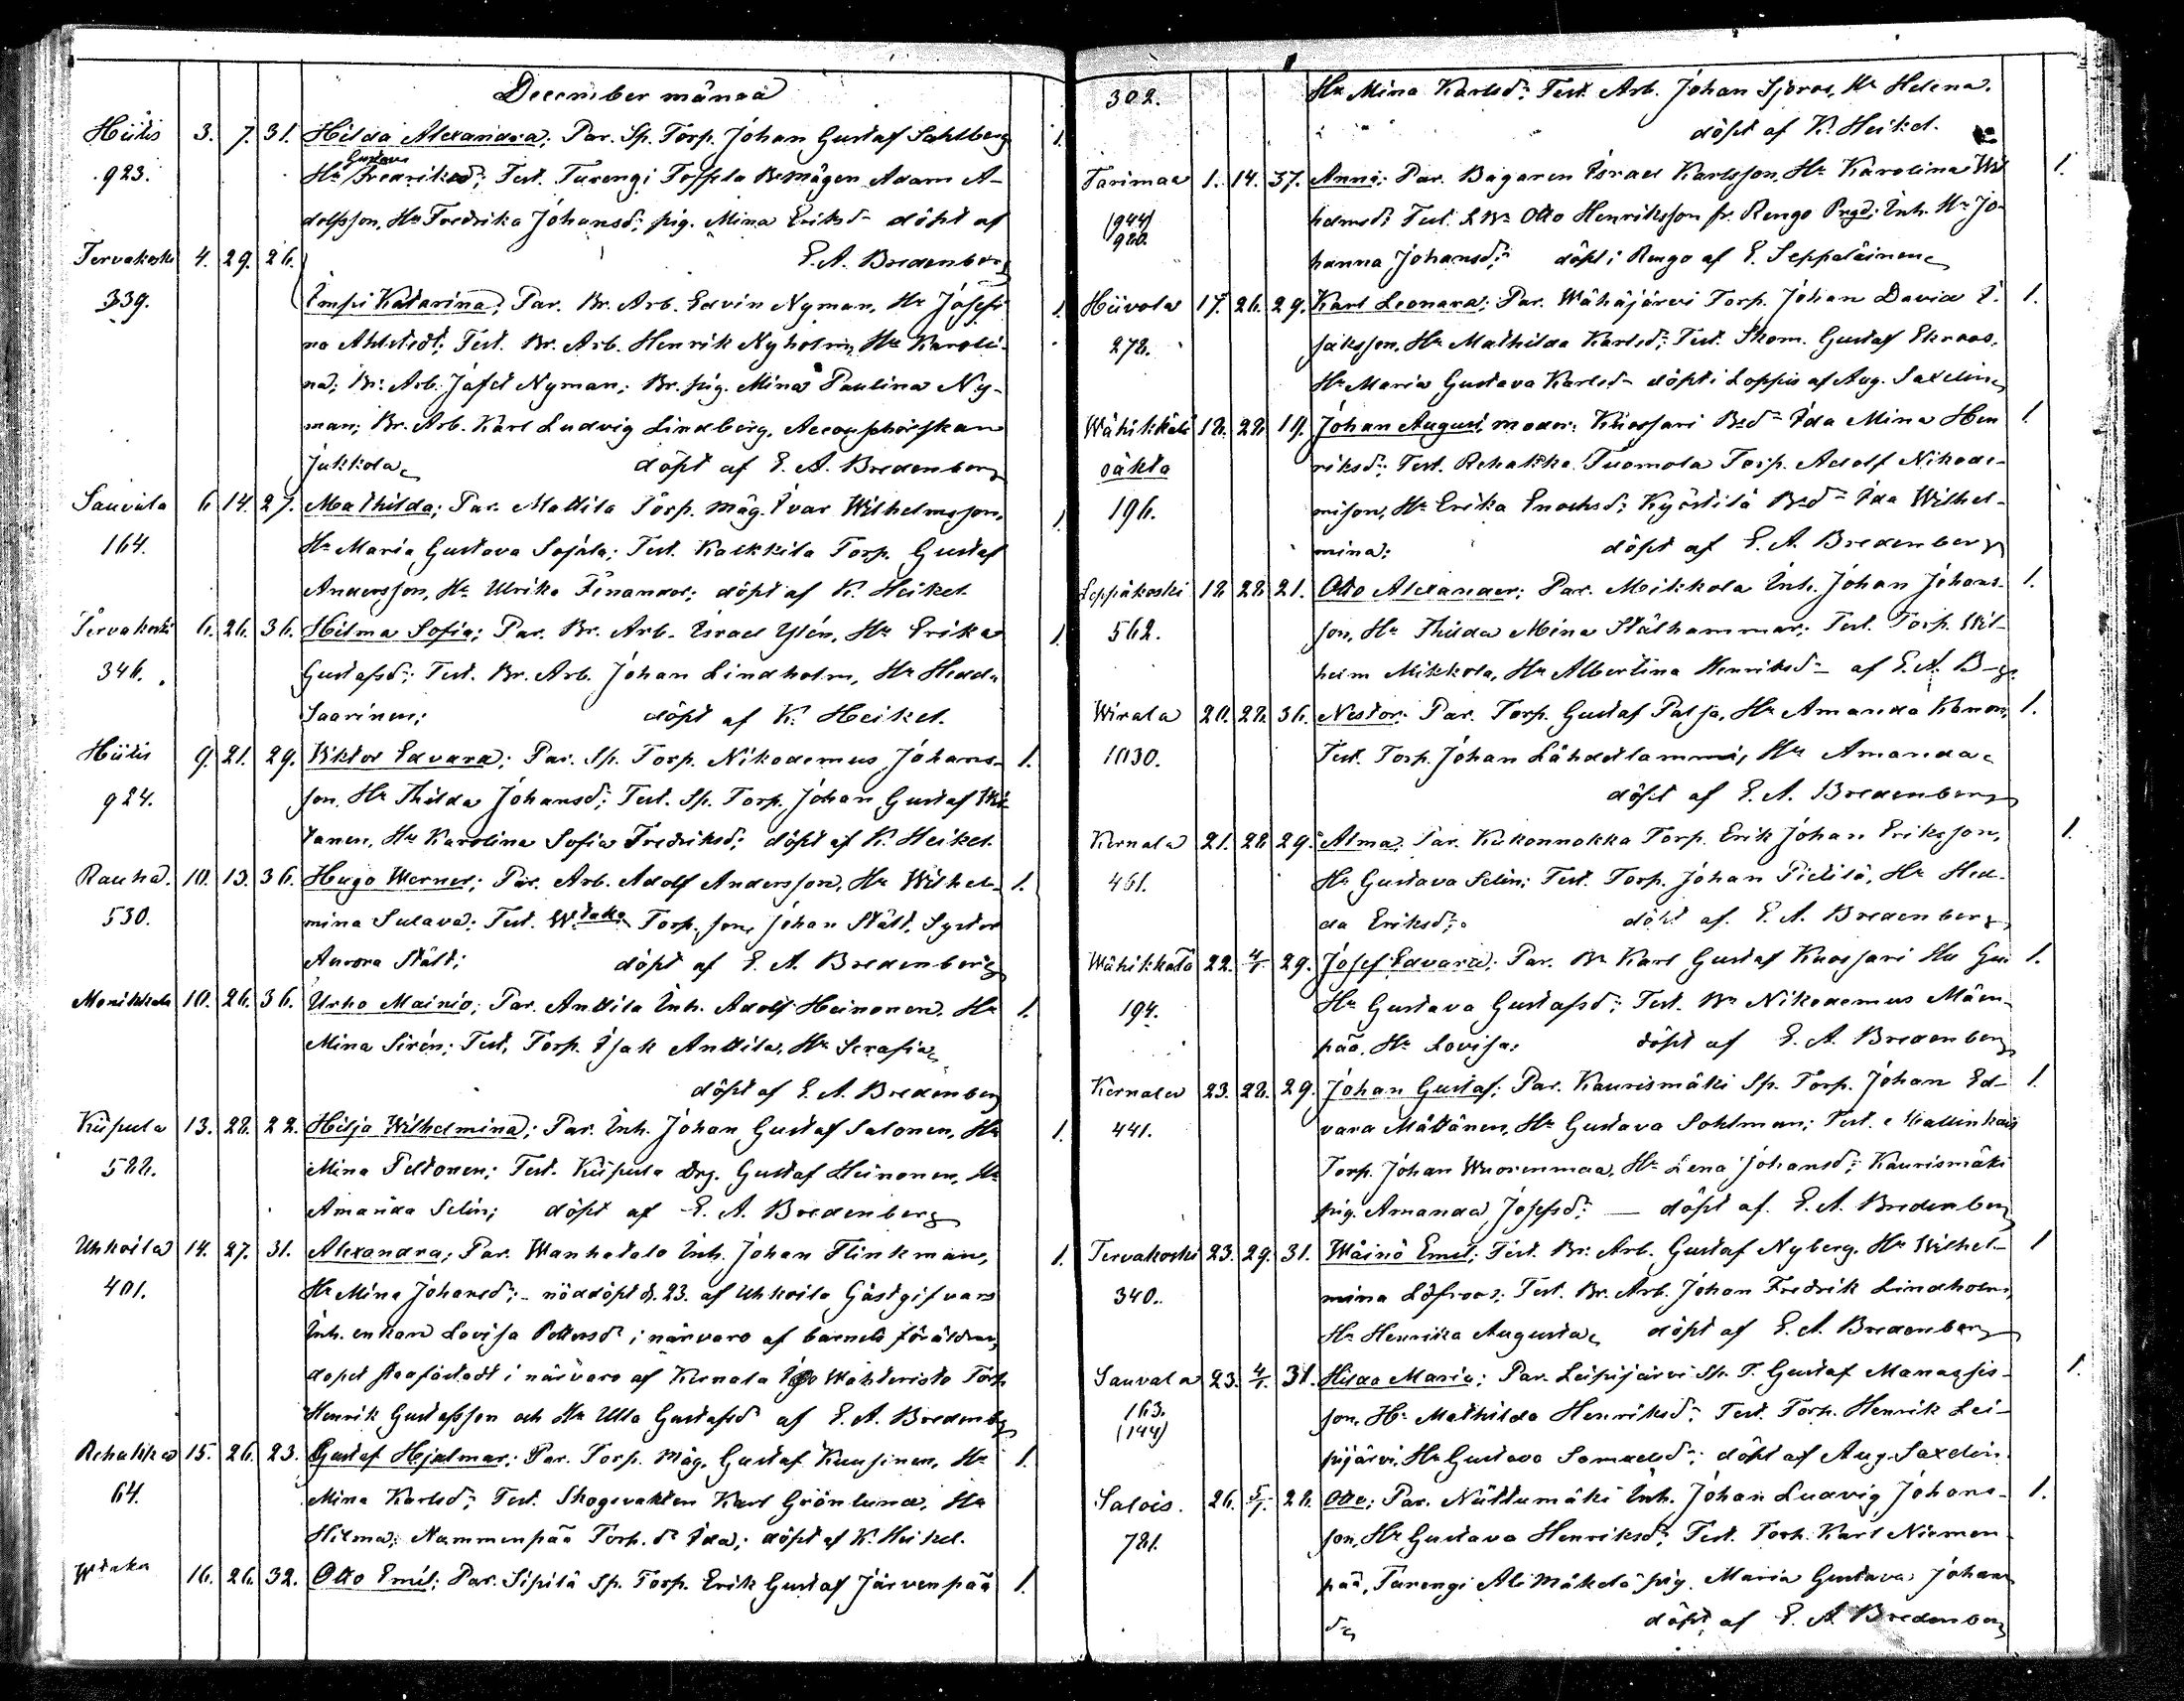 December månad
Hiitis 3. 7. 31. Hilda Alexandra; Par. Sp. Torp. Johan Gustaf Sahlberg 1.
923. Hu Gustava Fredriksdr; Test. Turengi Bmågen Adam A-
dolfsson, Hu Fredrika Johansdr; pig. Mina Eriksdr döpt af
Tervakoski 4. 29. 26. E. A. Bredenberg
339. Empi Katarina; Par. Br. Arb. Edvin Nyman, Hu Josefi- 1.
na Ahlstedt; Test. Br. Arb. Henrik Nyholm, Hu Karoli-
na; Br. Arb. Jafet Nyman; Br. pig. Mina Paulina Ny-
man; Br. Arb. Karl Ludvig Lindberg,
Jukkola döpt af E. A. Bredenberg
Sauvala 6 14. 27. Mathilda; Par. Mattila Torp. måg. Ivar Wilhelmsson, 1.
164. Hu Maria Gustava Sojala; Test. Kalkkila Torp. Gustaf
Andersson, Hu Ulrika Finander; döpt af K. Heikel.
Tervakoski 6. 26. 36. Hilma Sofia; Par. Br. Arb. Israel Ylén, Hu Erika 1.
346. Gustafsdr; Test. Br. Arb. Johan Lindholm, Hu Hedda
Saarinen; döpt af K. Heikel.
Hiitis 9. 21. 29. Viktor Edvard; Par. Sp. Torp. Nikodemus Johans- 1.
924. son, Hu Thilda Johansdr; Test. Sp. Torp. Johan Gustaf Wii-
tanen, Hu Karolina Sofia Fredriksdr; döpt af K. Heikel.
Rauha. 10. 13. 36. Hugo Werner; Par. Arb. Adolf Andersson, Hu Wilhel- 1.
530. mina Sulava; Test. Torp. son Johan Stålt, Syster
Aurora Stålt; döpt af E. A. Bredenberg
Monikkala 10. 26. 36. Urho Mainio; Par. Anttila Inh. Adolf Heinonen, Hu 1.
Mina Sirén; Test. Torp. Isak Anttila, Hu Serafia
döpt af E. A. Bredenberg
Kiipula 13. 28. 22. Hilja Wilhelmina; Par. Inh. Johan Gustaf Salonen, Hu 1.
588. Mina Peltonen; Test. Kiipula drg. Gustaf Heinonen, Hu
Amanda Selin; döpt af E. A. Bredenberg
Uhkoila 14. 27. 31. Alexandra; Par. Wanhatalo Inh. Johan Flinkman, 1.
401. Hu Mina Johansdr; nöddöpt d. 23. af Uhkoila Gästgifvars
Inh. enkan Lovisa Pettersdr i närvaro af barnets föräldrar,
dopet stadfästadt i närvaro af Kernala Wähteristo Torp.
Henrik Gustafsson och Hu Ulla Gustafsdr af E. A. Bredenbg
Rehakka 15. 26. 23. Gustaf Hjalmar; Par. Torp. måg. Gustaf Kuusinen, Hu 1.
64. Mina Karlsdr; Test. Skogsvakten Karl Grönlund, Hu
Hilma; Nummenpää Torp. dr Ida; döpt af K. Heikel.
16. 26. 32. Otto Emil; Par. Sipilä Sp. Torp. Erik Gustaf Järvenpää 1.
302. Hu Mina Karlsdr; Test. Arb. Johan Sjöros, Hu Helena.
döpt af K. Heikel.
Tarimaa 1. 14. 37. Anni; Par. Bagaren Israel Karlsson, Hu Karolina Wil- 1.
(944) helmsdr Test. Otto Henriksson fr. Rengo Inh. Hu Jo-
920. hanna Johansdr; döpt i Rengo af E. Seppeläinen
Hiivola 17. 26. 29. Karl Leonard; Par. Wähäjärvi Torp. Johan David I- 1.
278. saksson, Hu Mathilda Karlsdr; Test. Skom. Gustaf Ekroos,
Hu Maria Gustava Karlsdr döpt i Loppis af Aug. Saxelin
Wähikkälä 18. 28. 19. Johan August, moder: Kuossari Bdr Ida Mina Hen- 1
riksdr; Test. Rehakka Tuomola Torp. Adolf Nikode-
196. misson, Hu Erika Enochsdr; Kyöstilä Bdr Ida Wilhel-
mina; döpt af E. A. Bredenberg
Leppäkoski 18. 28. 21. Otto Alexander; Par. Meikkola Inh. Johan Johans- 1.
562. son, Hu Thilda Mina Stålhammar; Test. Torp. Wil-
helm Mikkola, Hu Albertina Henriksdr af E. A. B-g.
Wirala 20. 28. 36. Nestor; Par. Torp. Gustaf Patja, Hu Amanda Kanon, 1.
1030. Test. Torp. Johan Lähdetlammi, Hu Amanda
döpt af E. A. Bredenberg
Kernala 21. 28 29. Alma; Par. Kukonnokka Torp. Erik Johan Eriksson, 1.
451. Hu Gustava Selin; Test. Torp. Johan Pietilä, Hu Hed-
da Eriksdr; döpt af E. A. Bredenberg
Wähikkälä 22. 4/1 29. Josef Edvard; Par. Bn Karl Gustaf Kuossari Hu Gu 1.
194. Hu Gustava Gustafsdr; Test. Bn Nikodemus Mäen-
pää, Hu Lovisa; döpt af E. A. Bredenberg
Kernala 23. 28. 29. Johan Gustaf; Par. Kaurismäki Sp. Torp. Johan Ed- 1.
441. vard Mättänen, Hu Gustava Sohlman; Test. Mallinkais
Torp. Johan Wuorenmaa, Hu Lena Johansdr; Kaurismäki
pig. Amanda Josefsdr; — döpt af E. A. Bredenberg
Tervakoski 23. 29. 31. Wäinö Emil; Test. Br. Arb. Gustaf Nyberg, Hu Wilhel- 1
340. mina Löfroos; Test. Br. Arb. Johan Fredrik Lindholm,
Hu Henrika Augusta döpt af E. A. Bredenberg
Sauvala 23. 4/1. 31. Hilda Maria; Par. Leipijärvi Sp. T. Gustaf Manasses- 1.
163. son, Hu Mathilda Henriksdr; Test. Torp. Henrik Lei-
(144) pijärvi, Hu Gustava Samuelsdr; döpt af Aug. Saxelin.
Salois. 26. 5/1. 28. Otto; Par. Niittumäki Inh. Johan Ludvig Johans- 1.
781. son, Hu Gustava Henriksdr; Test. Torp. Karl Niemen-
pää, Turengi Ali Mäkelä pig. Maria Gustava Johans
dr döpt af E. A. Bredenberg